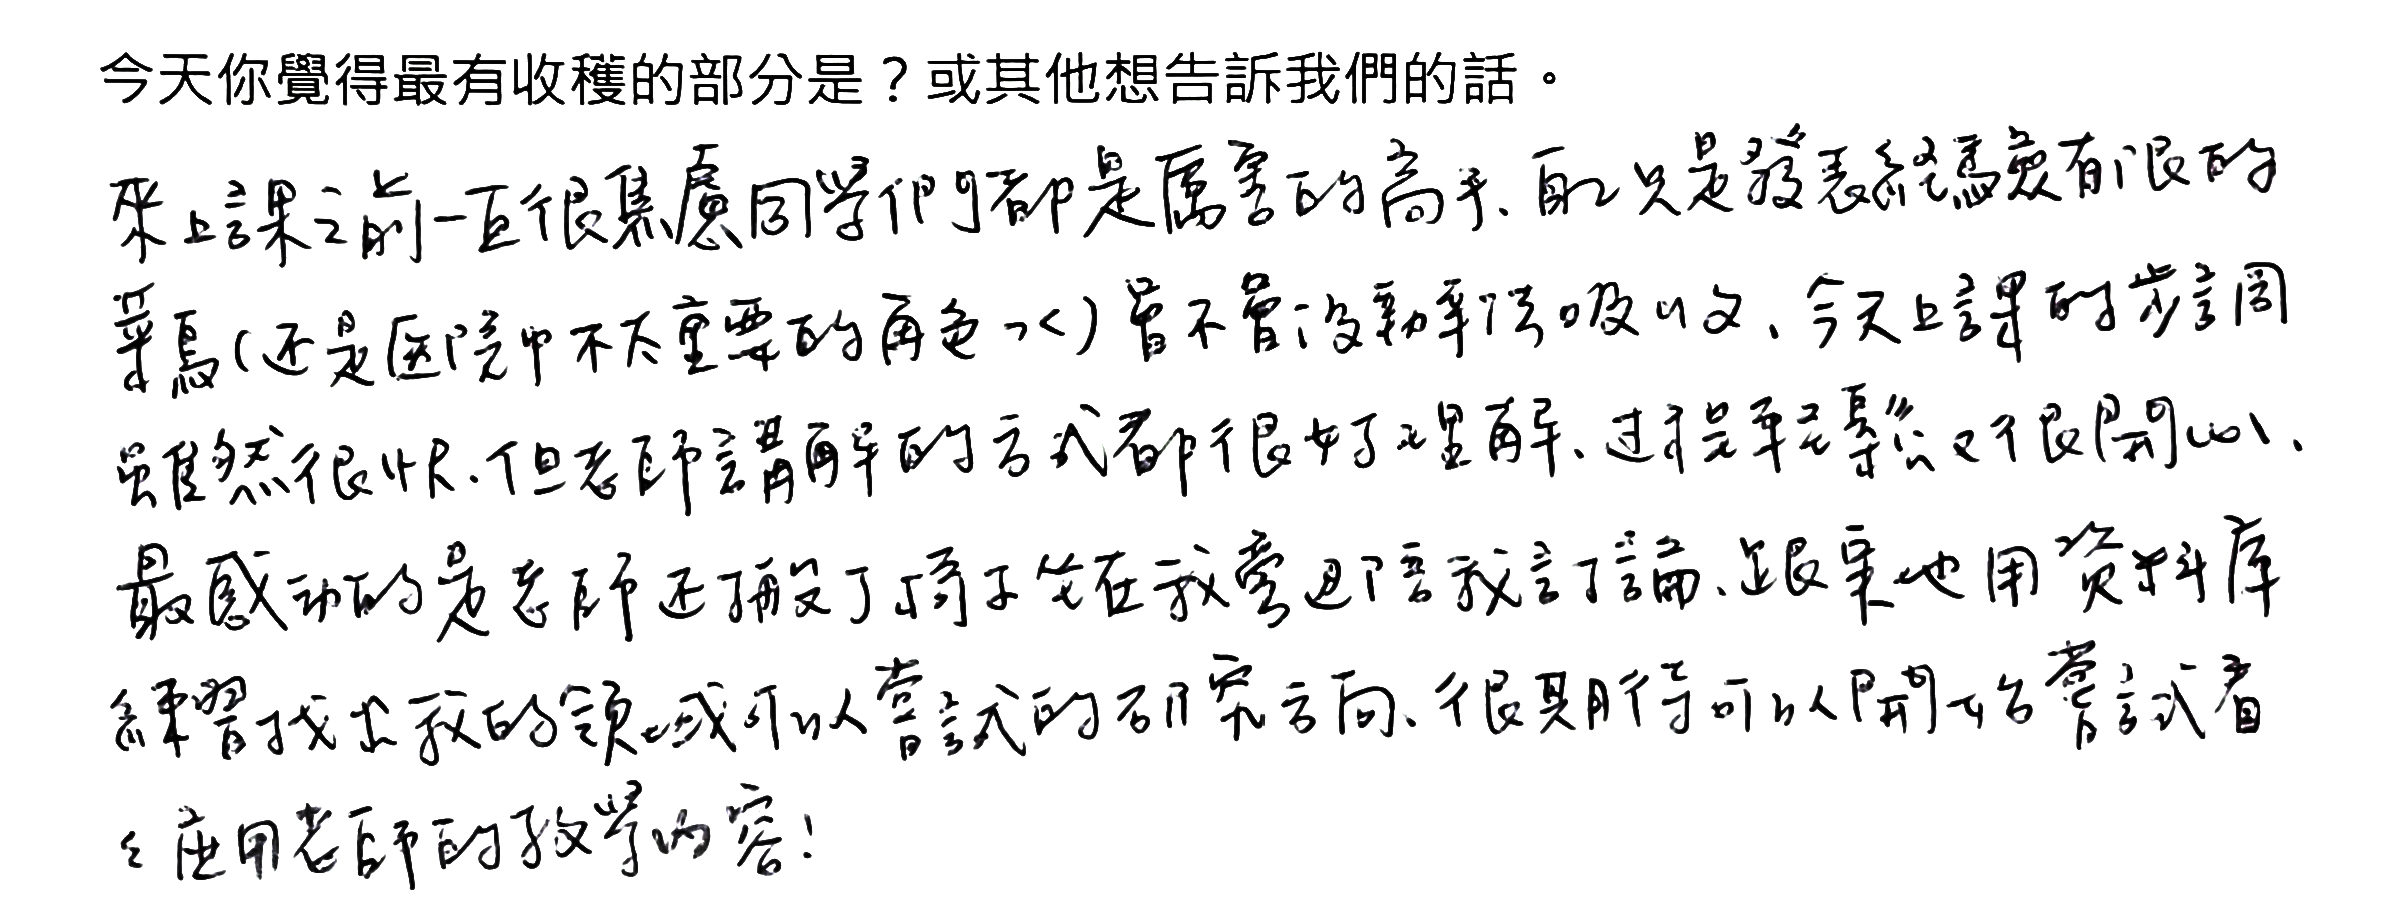 今天你覺得最有收穫的部分是？或其他想告訴我們的話。
來上課之前一直很焦慮同學們都是厲害的高手、自己只是發表經驗有限的
菜鳥(还是医院中不太重要的角色ㄱㄑ)會不會沒辦法吸收、今天上課的步調
雖然很快、但老師講解的方式都很好理解、过程輕鬆又很開心、
最感动的是老師还搬了椅子坐在我旁边陪我討論、跟桌也用資料庫
練習找出我的領域可以嘗試的研究方向、很期待可以開始嘗試看
々應用老師的教學內容!